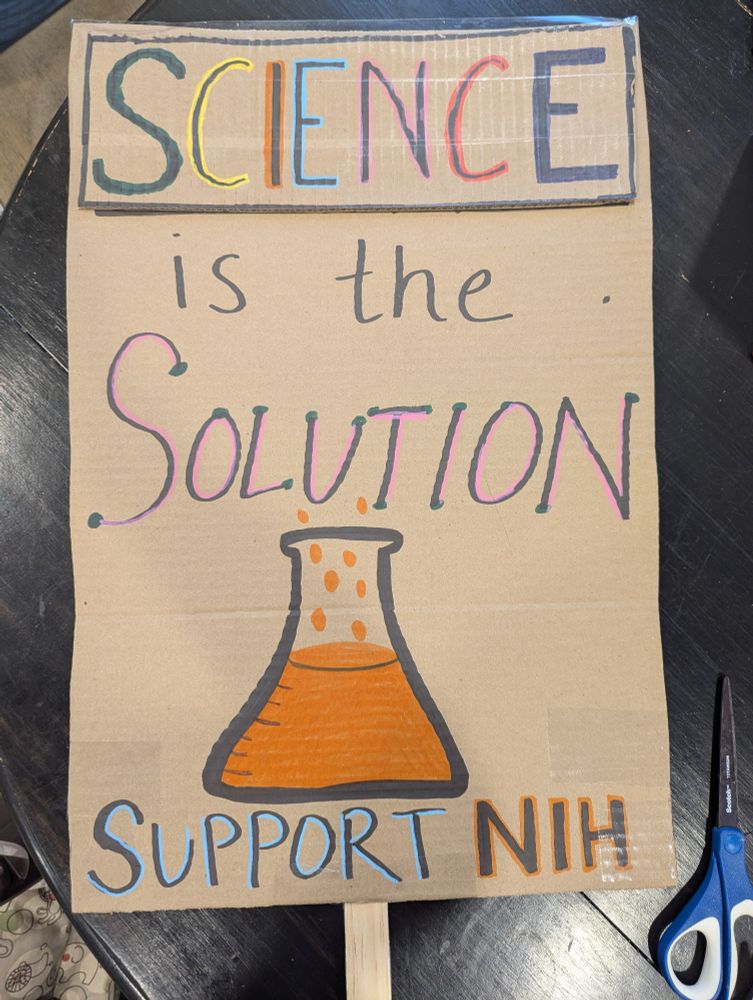 SCIENCE
is the
SOLUTION
SUPPORT NIH
Scotch